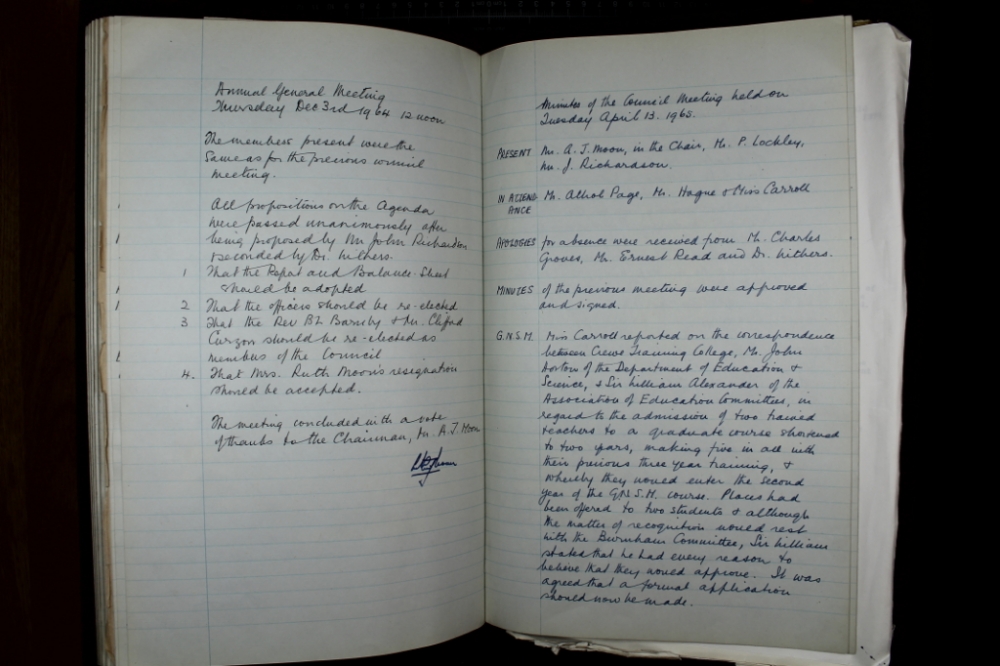 Annual General Meeting
Thursday Dec 3rd 1964 12 noon
The members present were the
same as for the previous council
meeting.
All propositions on the Agenda
were passed unanimously after
being proposed by Mr John Richardson
& seconded by Dr. Withers.
1 That the Report and Balance Sheet
should be adopted
2 That the officers should be re-elected
3 That the Rev B L Barnby & Mr. Clifford
Curzon should be re-elected as
members of the Council
4. That Mrs. Ruth Moon's resignation
should be accepted.
The meeting concluded with a vote
of thanks to the Chairman, Mr. A. J. Moon
Minutes of the Council Meeting held on
Tuesday April 13. 1965.
PRESENT Mr. A. J. Moon, in the Chair, Mr. P. Lockley,
Mr. J. Richardson.
IN ATTEND- Mr. Athol Page, Mr. Hague & Miss Carroll
ANCE
APOLOGIES for absence were received from Mr. Charles
Groves, Mr. Ernest Read and Dr. Withers.
MINUTES of the previous meeting were approved
and signed.
G.N.S.M. Miss Carroll reported on the correspondence
between Crewe Training College, Mr. John
of the Department of Education &
Science, & Sir William Alexander of the
Association of Education Committees, in
regard to the admission of two trained
teachers to a graduate course shortened
to two years, making five in all with
their previous three year training, &
whereby they would enter the second
year of the G.N.S.M. course. Places had
been offered to two students & although
the matter of recognition would rest
with the Burnham Committee, Sir William
stated that he had every reason to
believe that they would approve. It was
agreed that a formal application
should now be made.